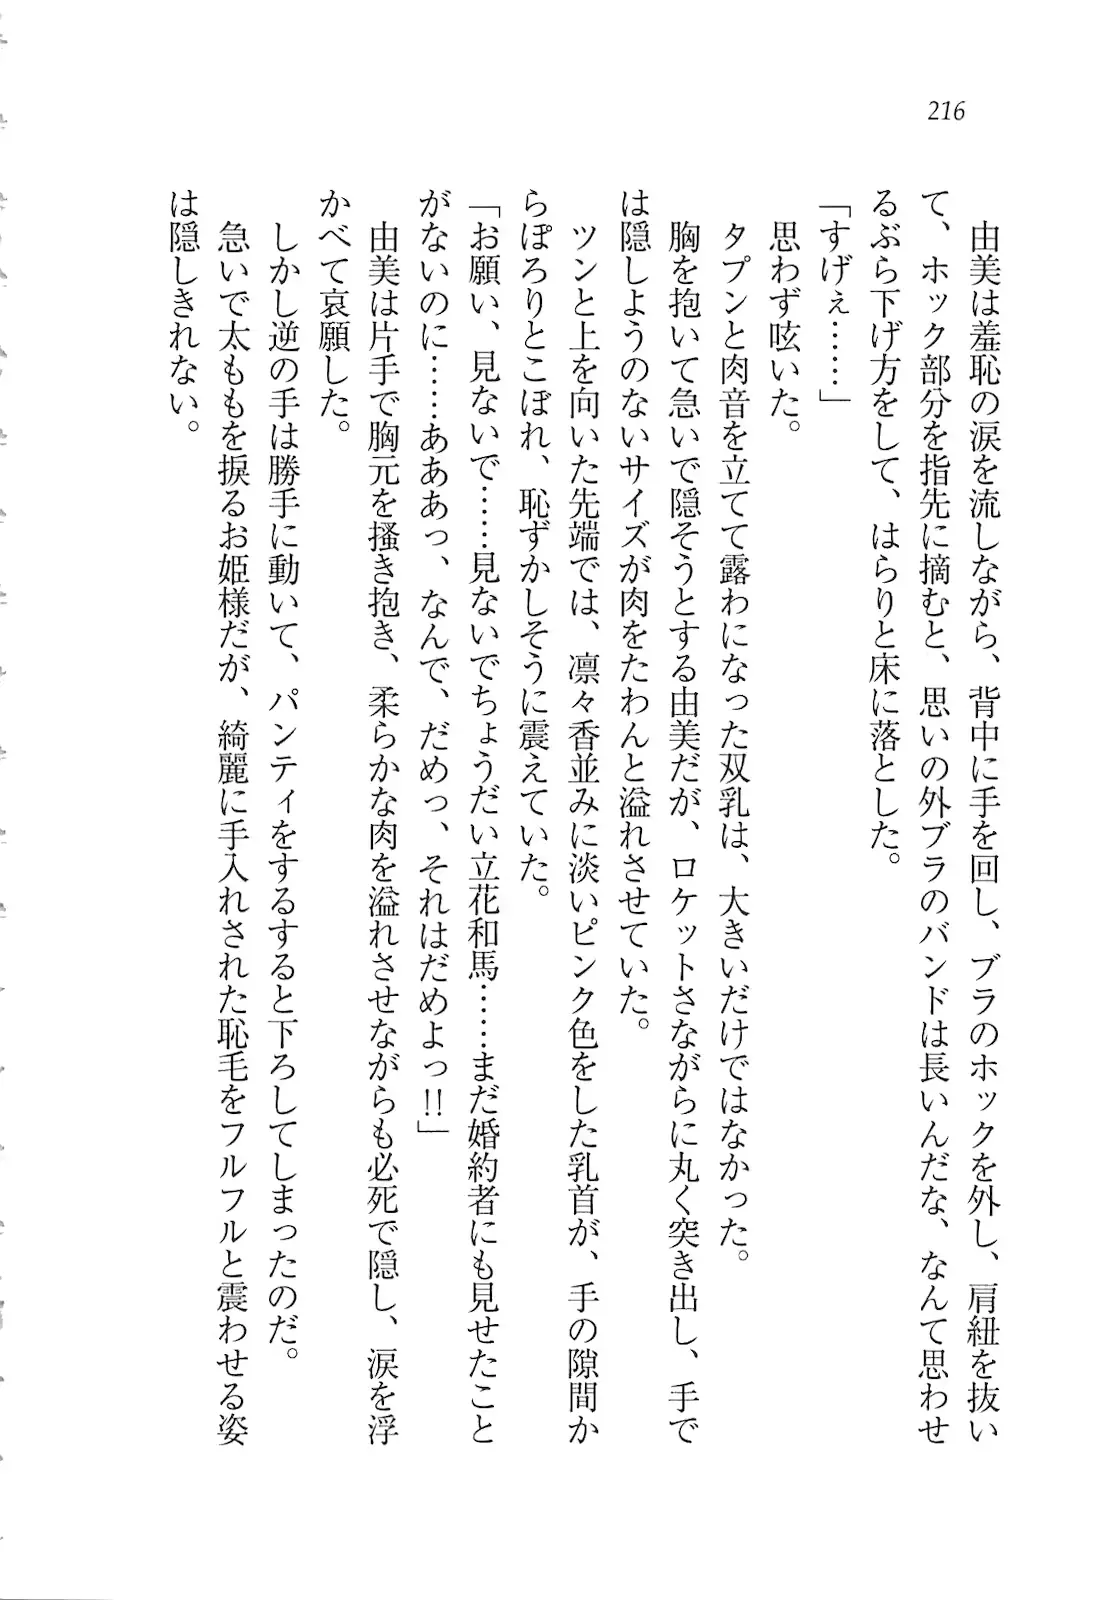 216
由美は羞恥の涙を流しながら、背中に手を回し、ブラのホックを外し、肩紐を抜い
て、ホック部分を指先に摘むと、思いの外ブラのバンドは長いんだな、なんて思わせ
るぶら下げ方をして、はらりと床に落とした。
「すげぇ……」
思わず呟いた。
タプンと肉音を立てて露わになった双乳は、大きいだけではなかった。
胸を抱いて急いで隠そうとする由美だが、ロケットさながらに丸く突き出し、手で
は隠しようのないサイズが肉をたわんと溢れさせていた。
ツンと上を向いた先端では、凛々香並みに淡いピンク色をした乳首が、手の隙間か
らぽろりとこぼれ、恥ずかしそうに震えていた。
「お願い、見ないで……見ないでちょうだい立花和馬……まだ婚約者にも見せたこと
がないのに……あああっ、なんで、だめっ、それはだめよっ!!」
由美は片手で胸元を掻き抱き、柔らかな肉を溢れさせながらも必死で隠し、涙を浮
かべて哀願した。
しかし逆の手は勝手に動いて、パンティをするすると下ろしてしまったのだ。
急いで太ももを捩るお姫様だが、綺麗に手入れされた恥毛をフルフルと震わせる姿
は隠しきれない。